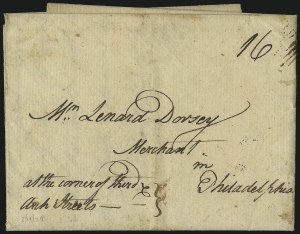 16
Mr. Lenard Dorsey
Merchant
in
Philadelphia
at the corner of third &
Arch Streets